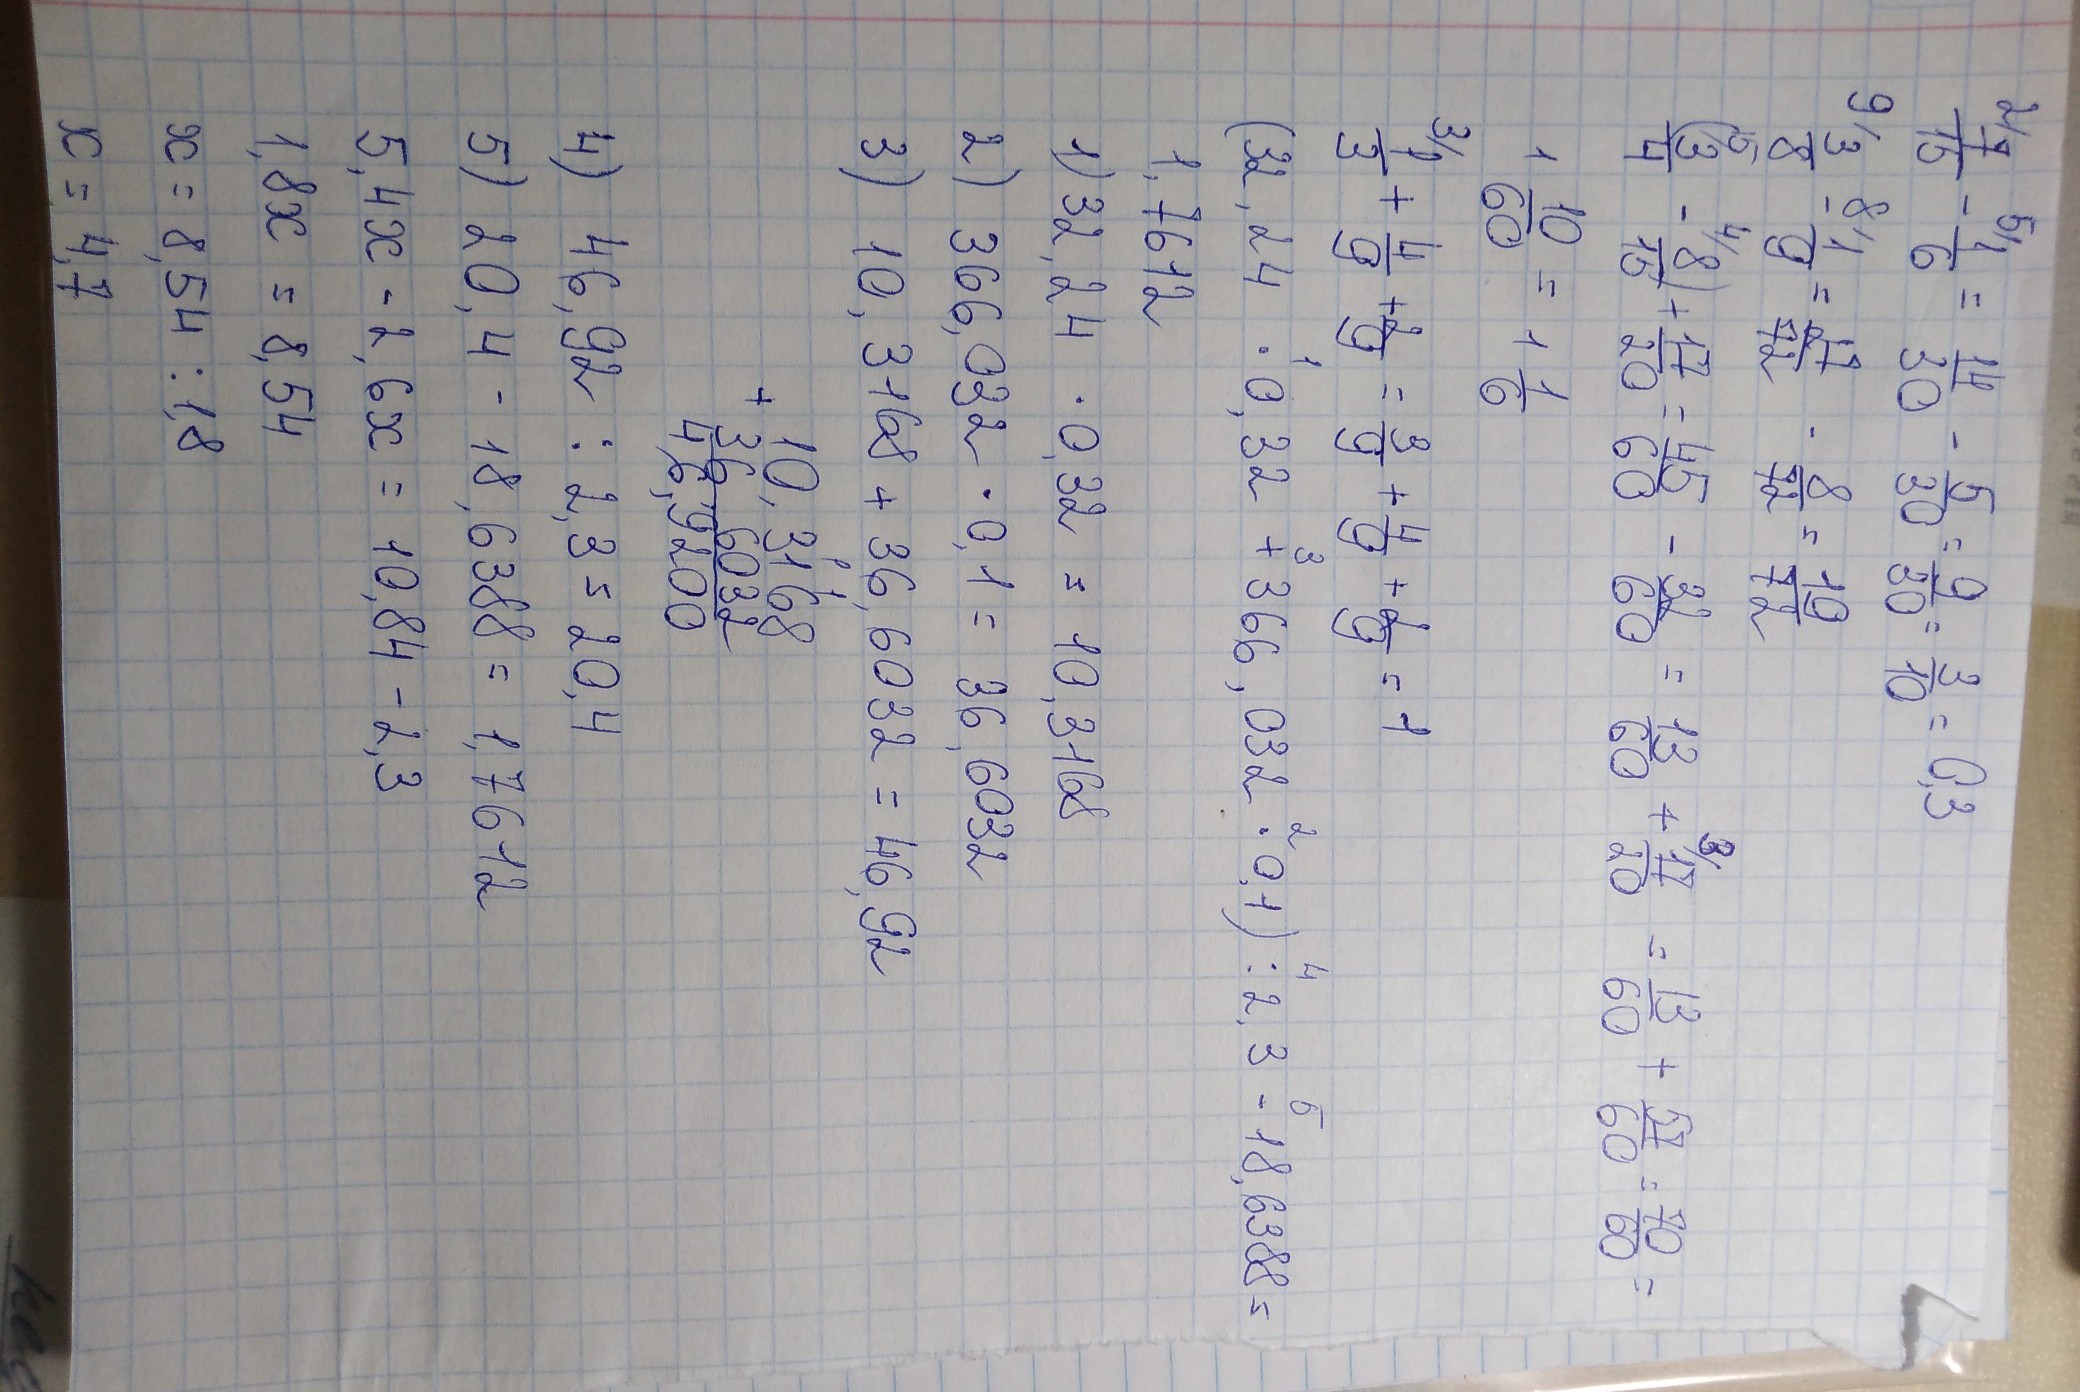 ²⁄ 7/15 - ⁵⁄ 1/6 = 14/30 - 5/30 = 9/30 = 3/10 = 0,3
⁹⁄ 3/8 - ⁸⁄ 1/9 = 27/72 - 8/72 = 19/72
(¹⁵⁄ 3/4 - ⁴⁄ 8/15) + 17/20 = 45/60 - 32/60 = 13/60 + ³⁄ 17/20 = 13/60 + 57/60 = 70/60 =
1 10/60 = 1 1/6
³⁄ 1/3 + 4/9 + 2/9 = 3/9 + 4/9 + 2/9 = 1
(32,24 ·¹ 0,32 +³ 366,032 ·² 0,1) :⁴ 2,3 -⁵ 18,6388 =
1,7612
1) 32,24 · 0,32 = 10,3168
2) 366,032 · 0,1 = 36,6032
3) 10,3168 + 36,6032 = 46,92
1 1
10,3168
+
36,6032
46,9200
4) 46,92 : 2,3 = 20,4
5) 20,4 - 18,6388 = 1,7612
5,4x - 2,6x = 10,84 - 2,3
1,8x = 8,54
x = 8,54 : 1,8
x = 4,7